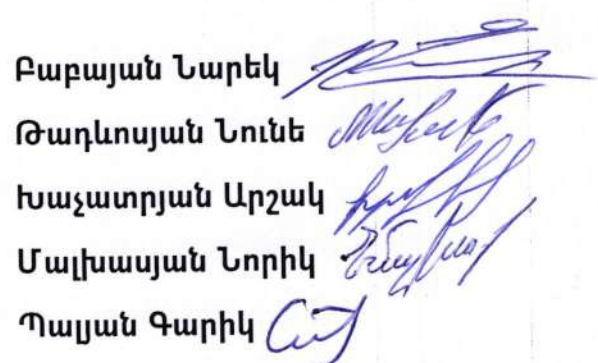 Բաբայան Նարեկ
Թադևոսյան Նունե
Խաչատրյան Արշակ
Մալխասյան Նորիկ
Պալյան Գարիկ